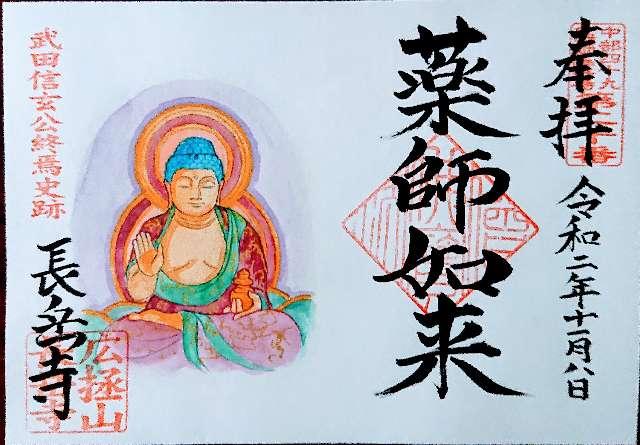 奉拝
令和二年十一月八日
薬師如来
武田信玄公終焉史跡
長岳寺
広拯山